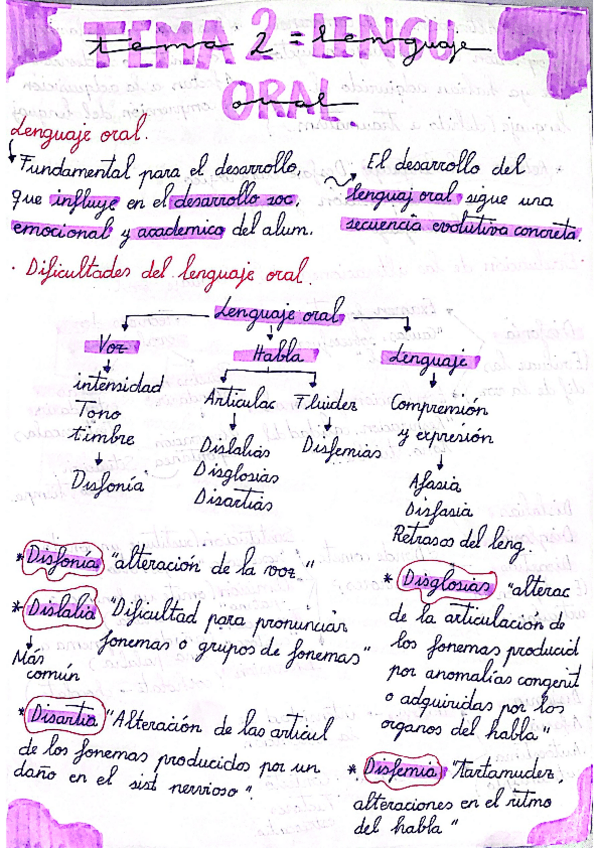 TEMA 2 = LENGU
tema 2 = lenguaje
ORAL.
oral.
Lenguaje oral.
Fundamental para el desarrollo,
que influye en el desarrollo soc,
emocional y academico del alum.
El desarrollo del
lenguaj oral, sigue una
secuencia evolutiva concreta.
· Dificultades del lenguaje oral.
Lenguaje oral
Voz
Habla
Lenguaje
intensidad
Tono
timbre
Articulac
Fluidez
Comprensión
y expresión
Disfonía
Dislalias
Disglosias
Disartias
Disfemias
Afasia
Disfasia
Retrasos del leng.
* Disfonía "alteración de la voz"
* Dislalia "Dificultad para pronunciar
fonemas o grupos de fonemas"
Más
común
* Disartia "Alteración de las articul
de los fonemas producidos por un
daño en el sist nervioso".
* Disglosias "alterac
de la articulación de
los fonemas producid
por anomalias congenit
o adquiridas por los
organos del habla"
* Disfemia "Tartamudez,
alteraciones en el ritmo
del habla"